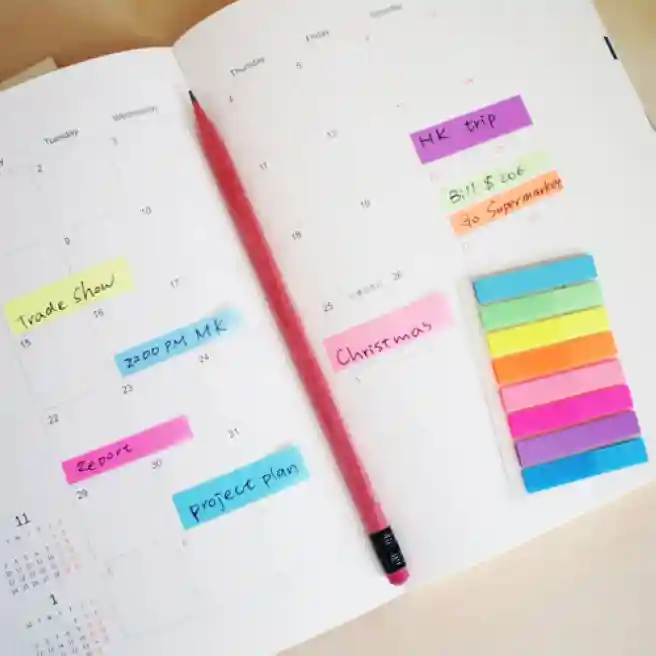 Tuesday
Wednesday
Thursday
Friday
Saturday
2
3
4
5
9
10
11
12
HK trip
Bill $ 206
go Supermarket
Trade Show
15
16
17
18
19
2:00 PM MK
22
23
24
25
26
Christmas
Report
29
30
31
project plan
11
1